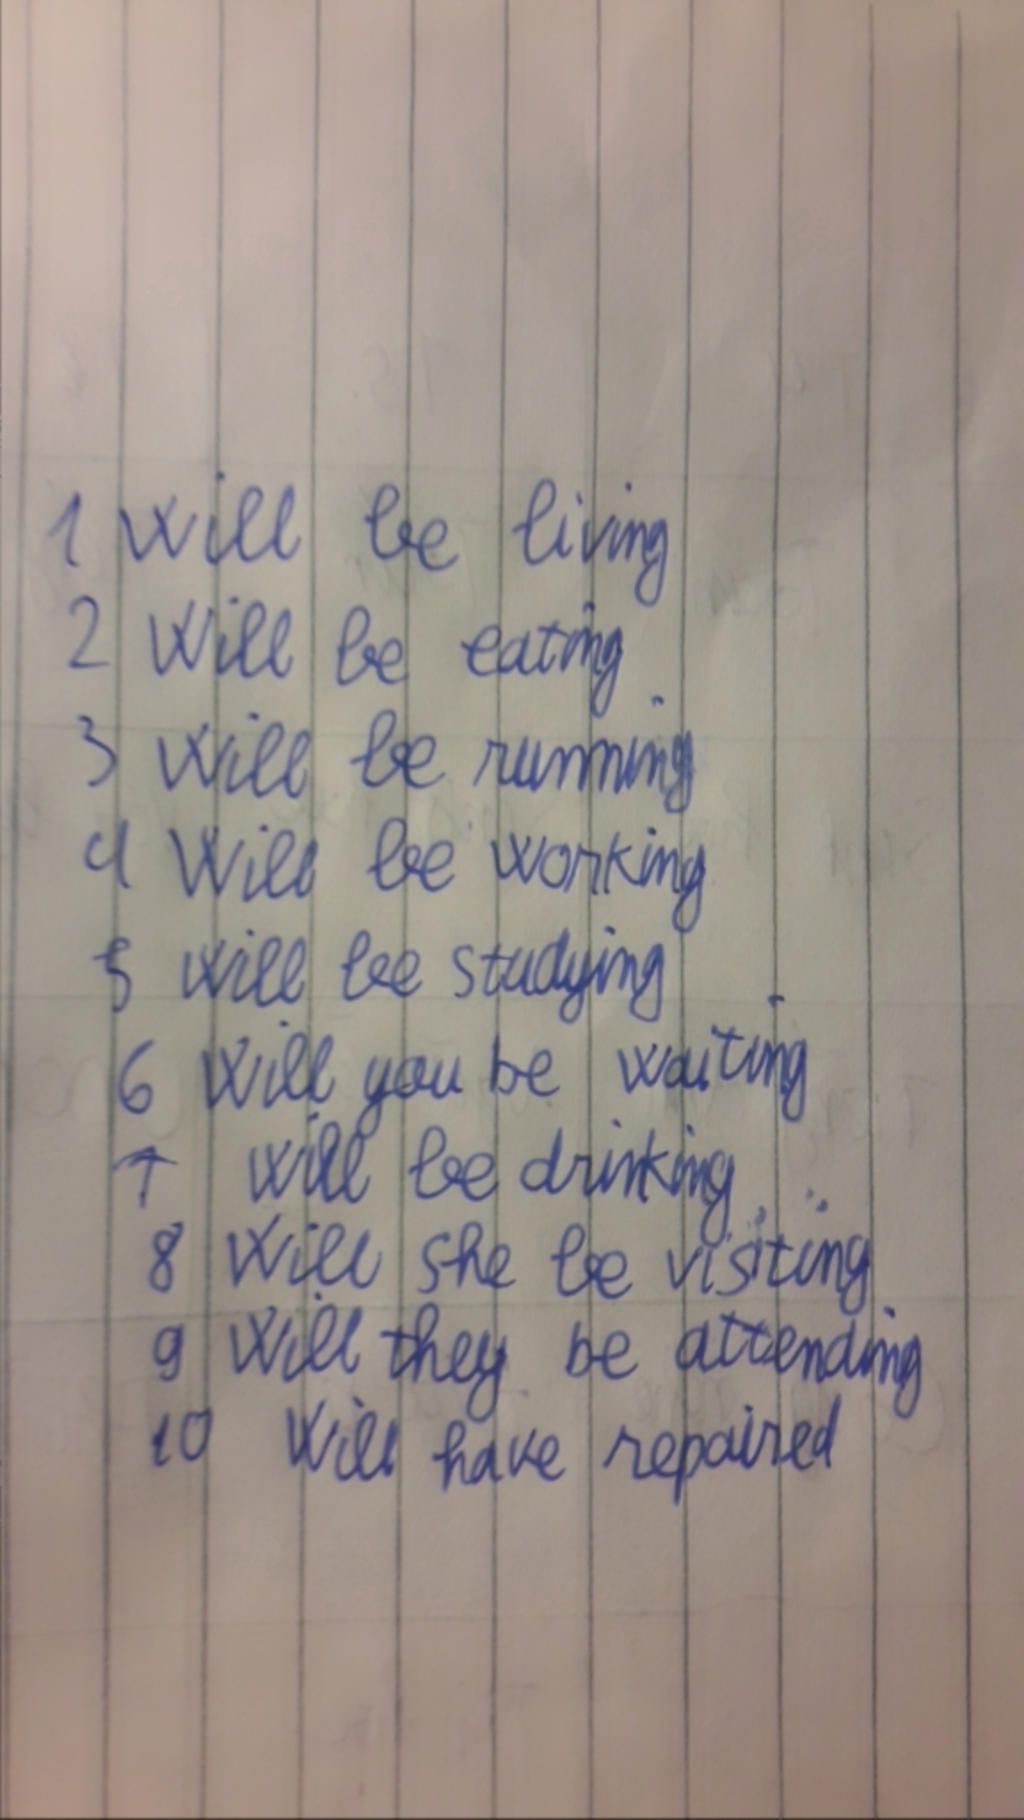 1 Will be living
2 Will be eating
3 Will be running
4 Will be working
5 Will be studying
6 Will you be waiting
7 Will be drinking
8 Will she be visiting
9 Will they be attending
10 Will have repaired